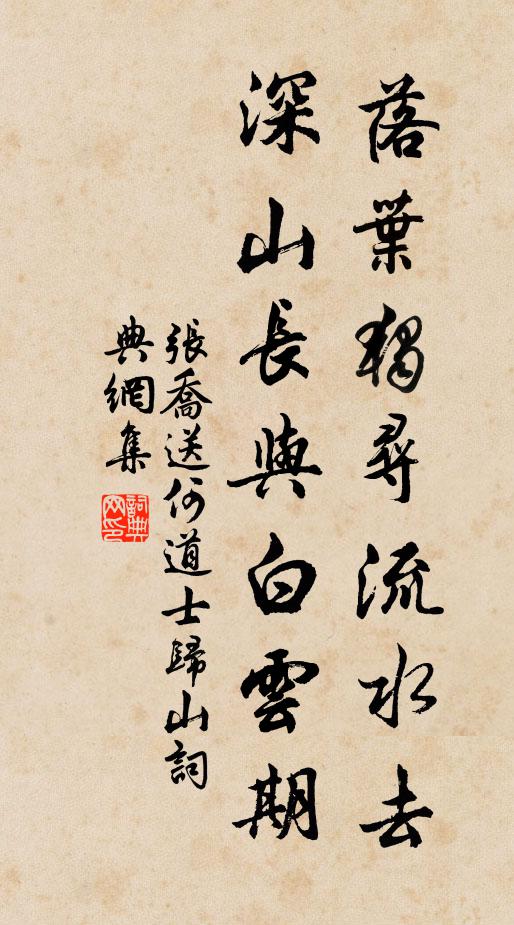 落葉獨尋流水去
深山長與白雲期
張喬送何道士歸山詞
典網集
詞典
網印